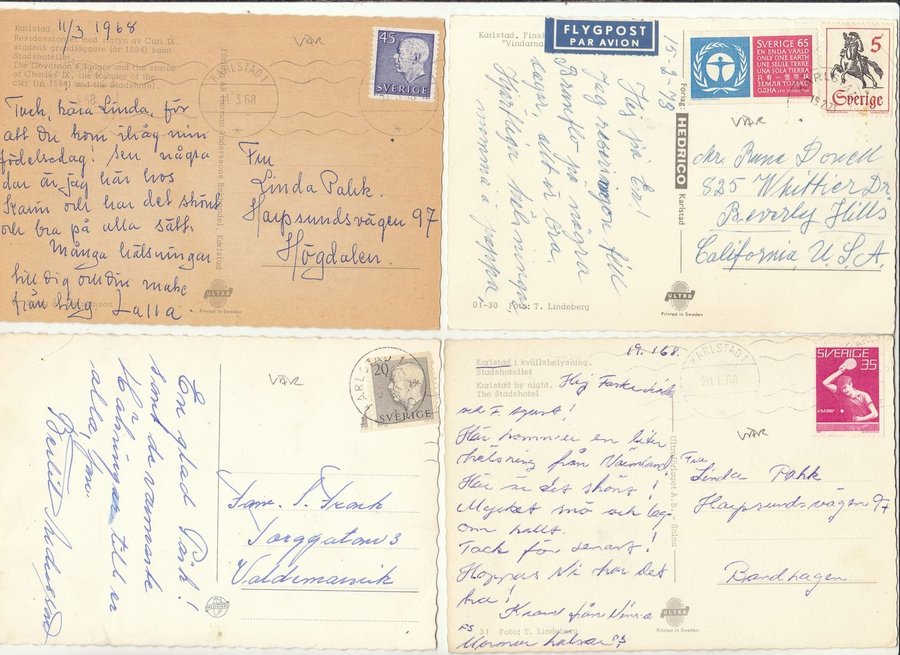 11/3 1968
VÄR
Karlstad.
Residensstoret med statyn av Carl IX,
stadens grundläggare (år 1584) samt
Stadshotellet.
The Governor's House and the statue
of Charles IX, the founder of the
city (in 1584) and the Stadshotel.
KARLSTAD 1
3.68
45
SVERIGE
Tack, kära Linda, för
att Du kom ihåg min
födelsedag! Sen några
dar är jag här hos
Karin och har det skönt
och bra på alla sätt.
Många hälsningar
till dig och din make
från
Lalla.
Frn
Linda Pahk.
Harpsundsvägen 97
Högdalen.
ULTRA
Printed in Sweden
Karlstad.
FLYGPOST
PAR AVION
SVERIGE 65
EN ENDA VÄRLD
ONLY ONE EARTH
UNE SEULE TERRE
UNA SOLA TIERRA
5
Sverige
15-2-73
VÄR
Hej på Er!
Jag reser igen till
på några
dagar, allt är bra.
Hjärtliga hälsningar
mamma & pappa
Förlag: HEDRICO Karlstad
Mr. Rune Donell
825 Whittier Dr.
Beverly Hills
California, U.S.A.
01-30 Foto: T. Lindeberg
ULTRA
Printed in Sweden
VÄR
KARLSTAD 1
20
SVERIGE
En glad Påsk!
samt de varmaste
hälsningar till er
alla, från
Berlit
Fam. S. Frank
Torggatan 3
Valdemarsvik
19.1.68.
Karlstad i kvällsbelysning.
Stadshotellet
Karlstad by night.
The Stadshotel
KARLSTAD 1
SVERIGE
35
VÄR
Hej
Här kommer en liten
hälsning från Värmland.
Här är det skönt!
Mycket snö och lag-
om kallt.
Tack för senast!
Hoppas Ni har det
bra!
Kram från Nina
PS
Mormor hälsar PS
Fru
Linda Pahk
Harpsundsvägen 97
Bandhagen
Ultraförlaget A.B. - Solna
ULTRA
Printed in Sweden
31 Foto: T. Lindeberg